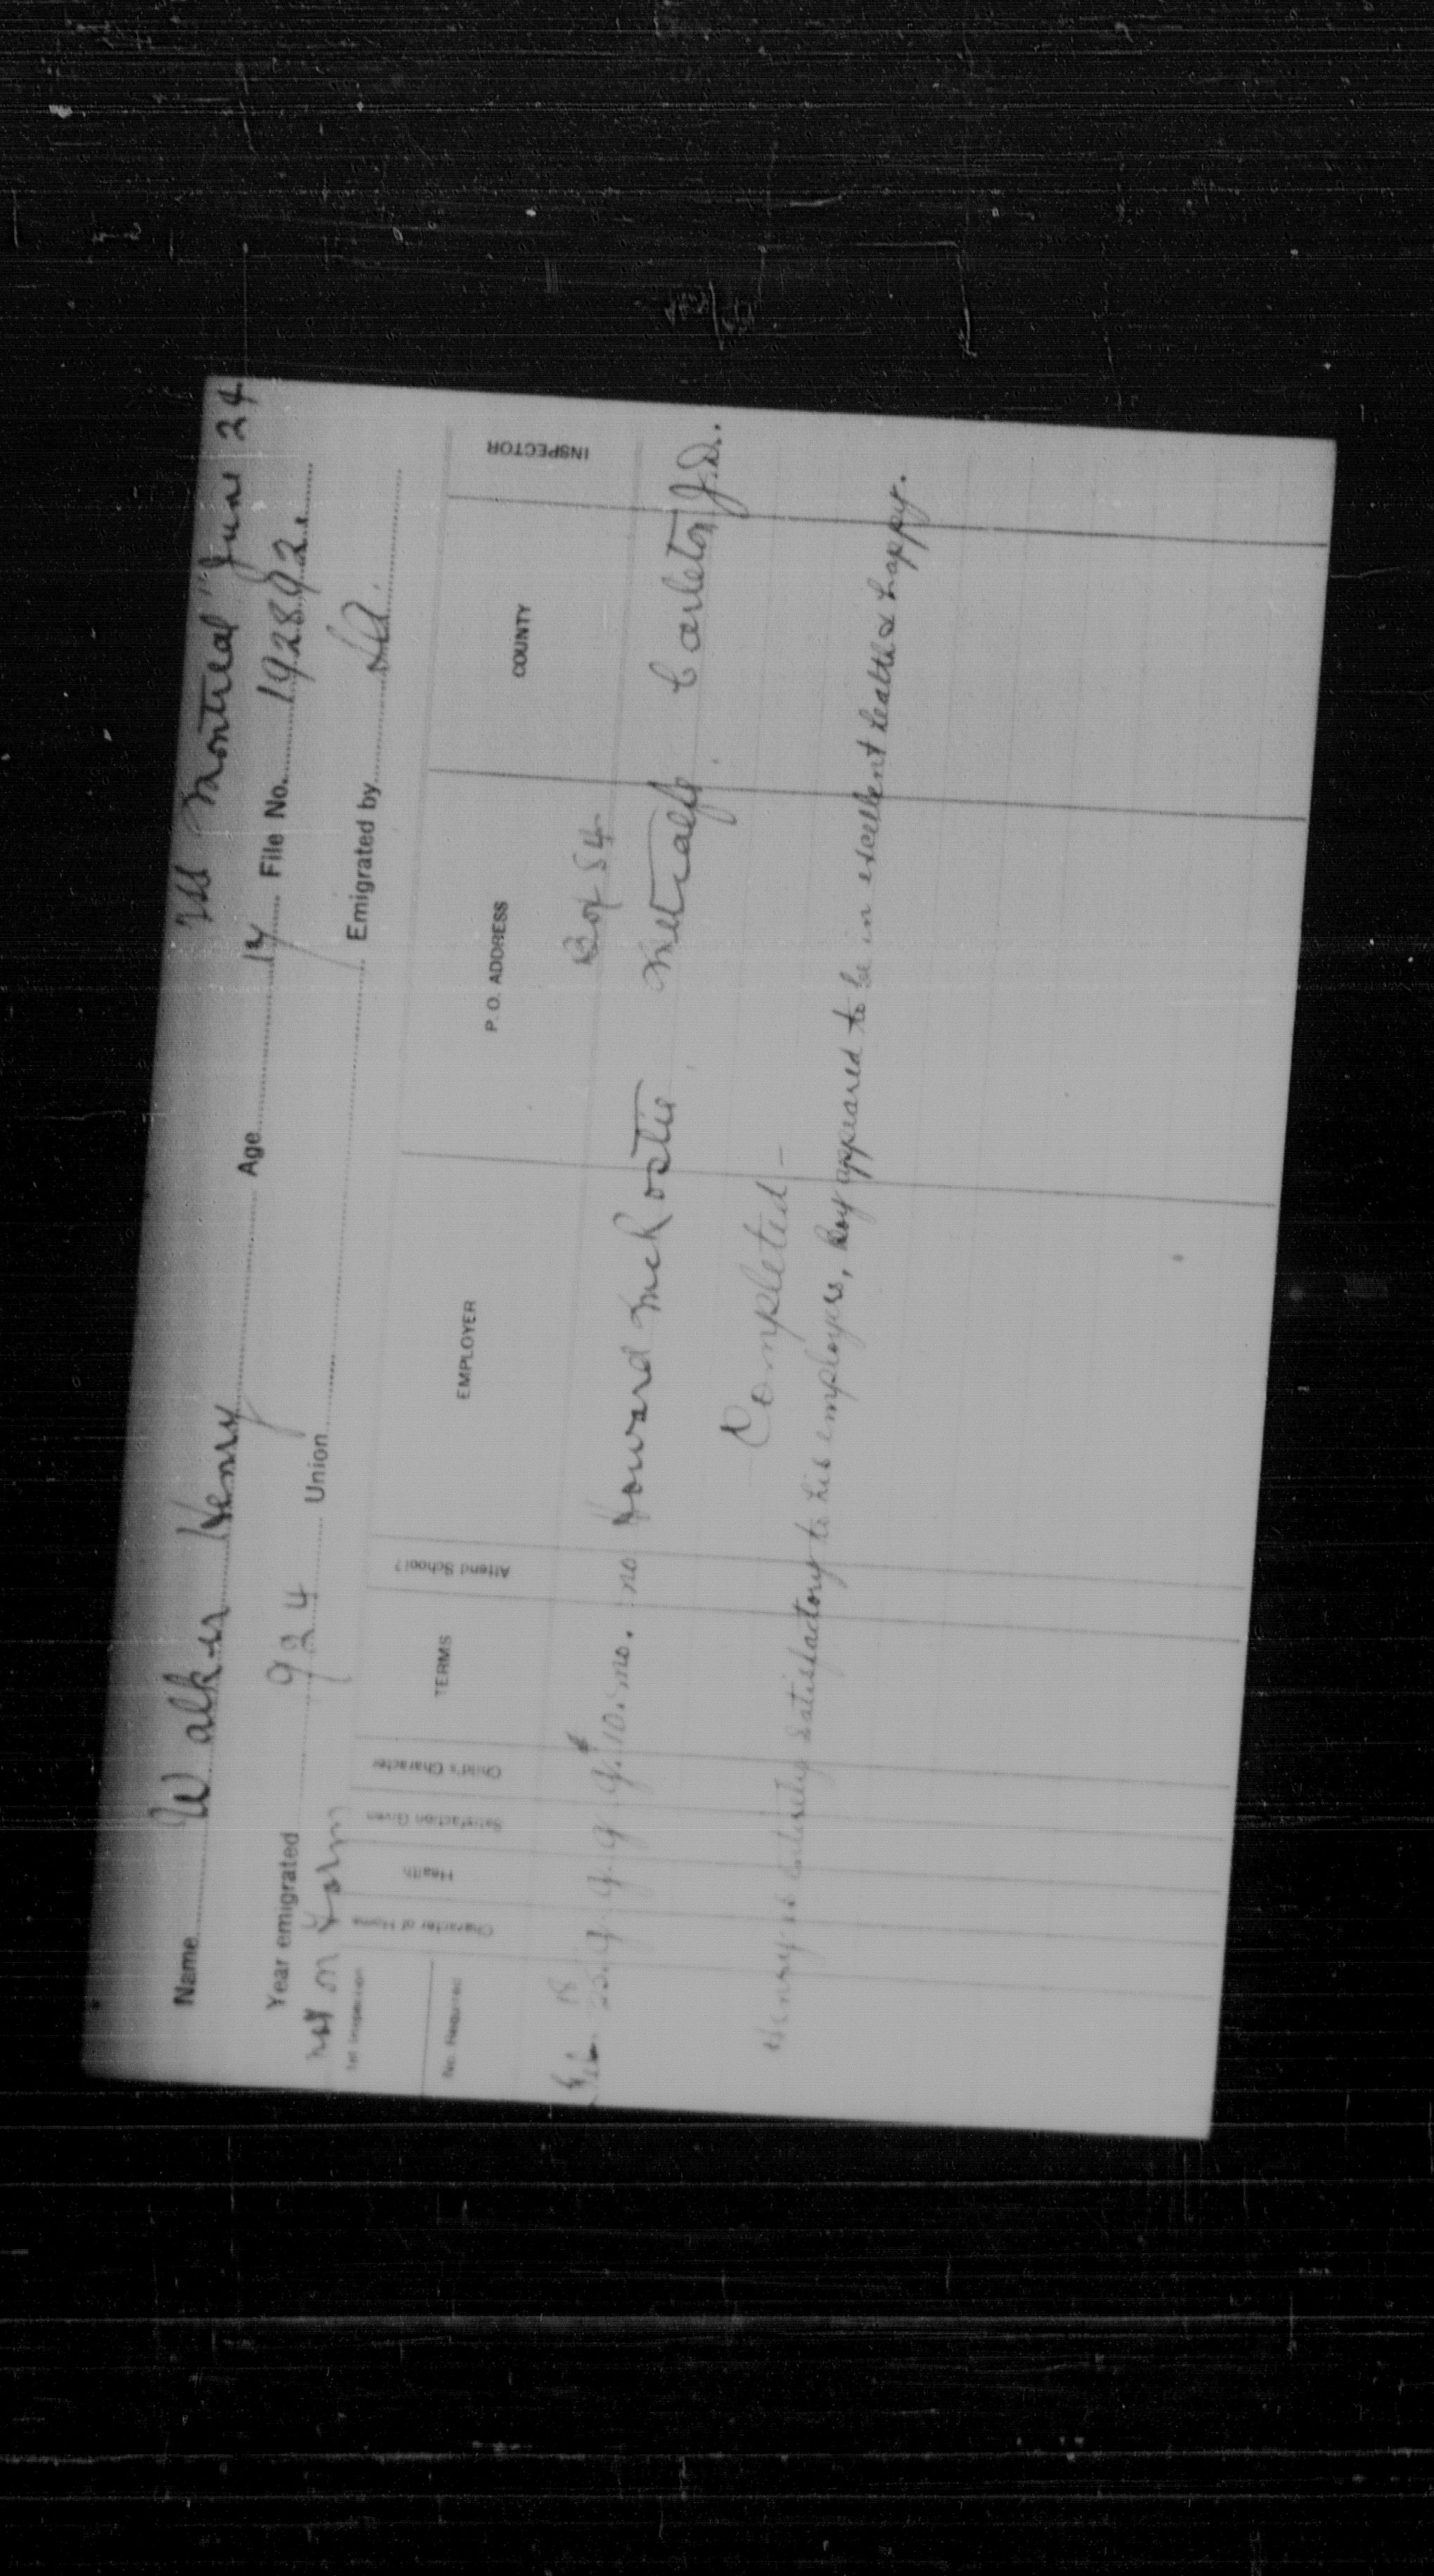 "Montreal" June 24
Name Walker Henry Age 14 File No. 192892
Year emigrated 924 Union Emigrated by S.A.
not on Form
1st Inspection
No. Required
Character of Home Health Satisfaction Given Child's Character TERMS Attend School? EMPLOYER P. O. ADDRESS COUNTY INSPECTOR
Box 54
Feb. 18 25. g. g. g g. $10. mo. no Howard McRostie Metcalfe Carleton J.D.
Completed -
Henry is entirely satisfactory to his employers, boy appeared to be in excellent health & happy.